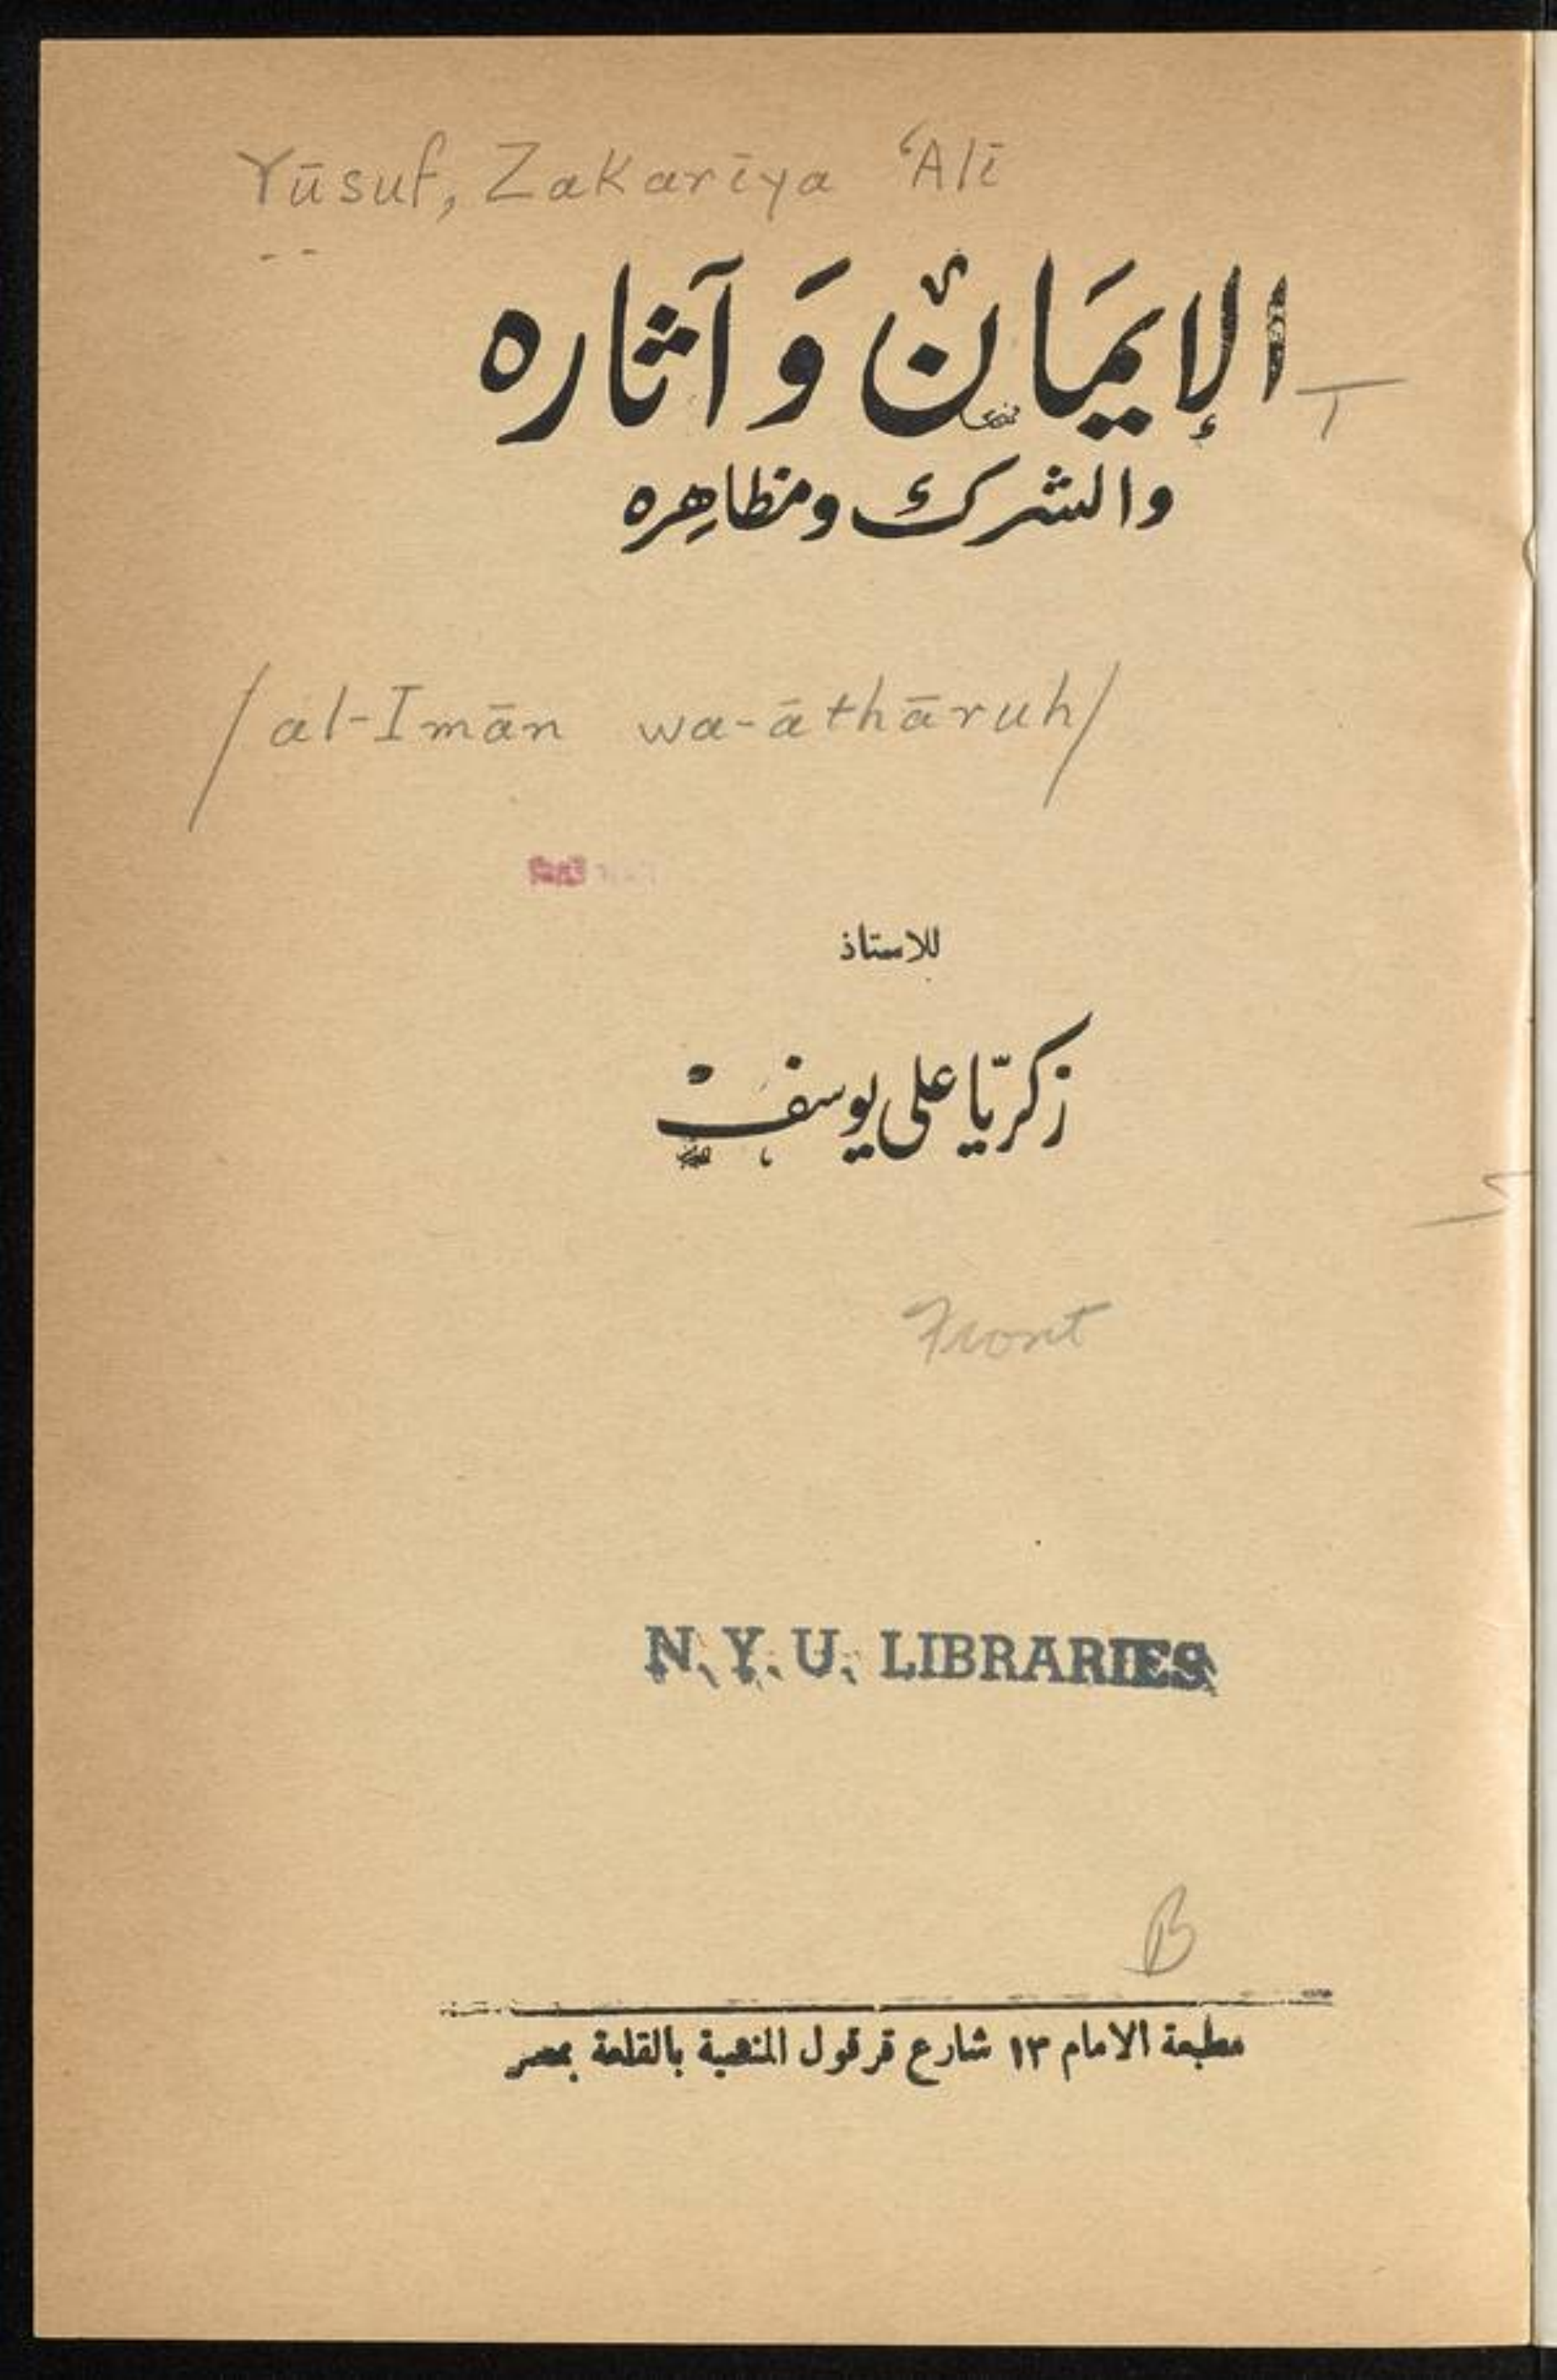 Yūsuf, Zakarīya ‘Alī
الإيمَان وَآثاره
والشرك ومظاهِره
/al-Imān wa-āthāruh/
للاستاذ
زكريّا على يوسف
Front
N. Y. U. LIBRARIES
B
مطبعة الامام ١٣ شارع قرقول المنشية بالقلعة بمصر